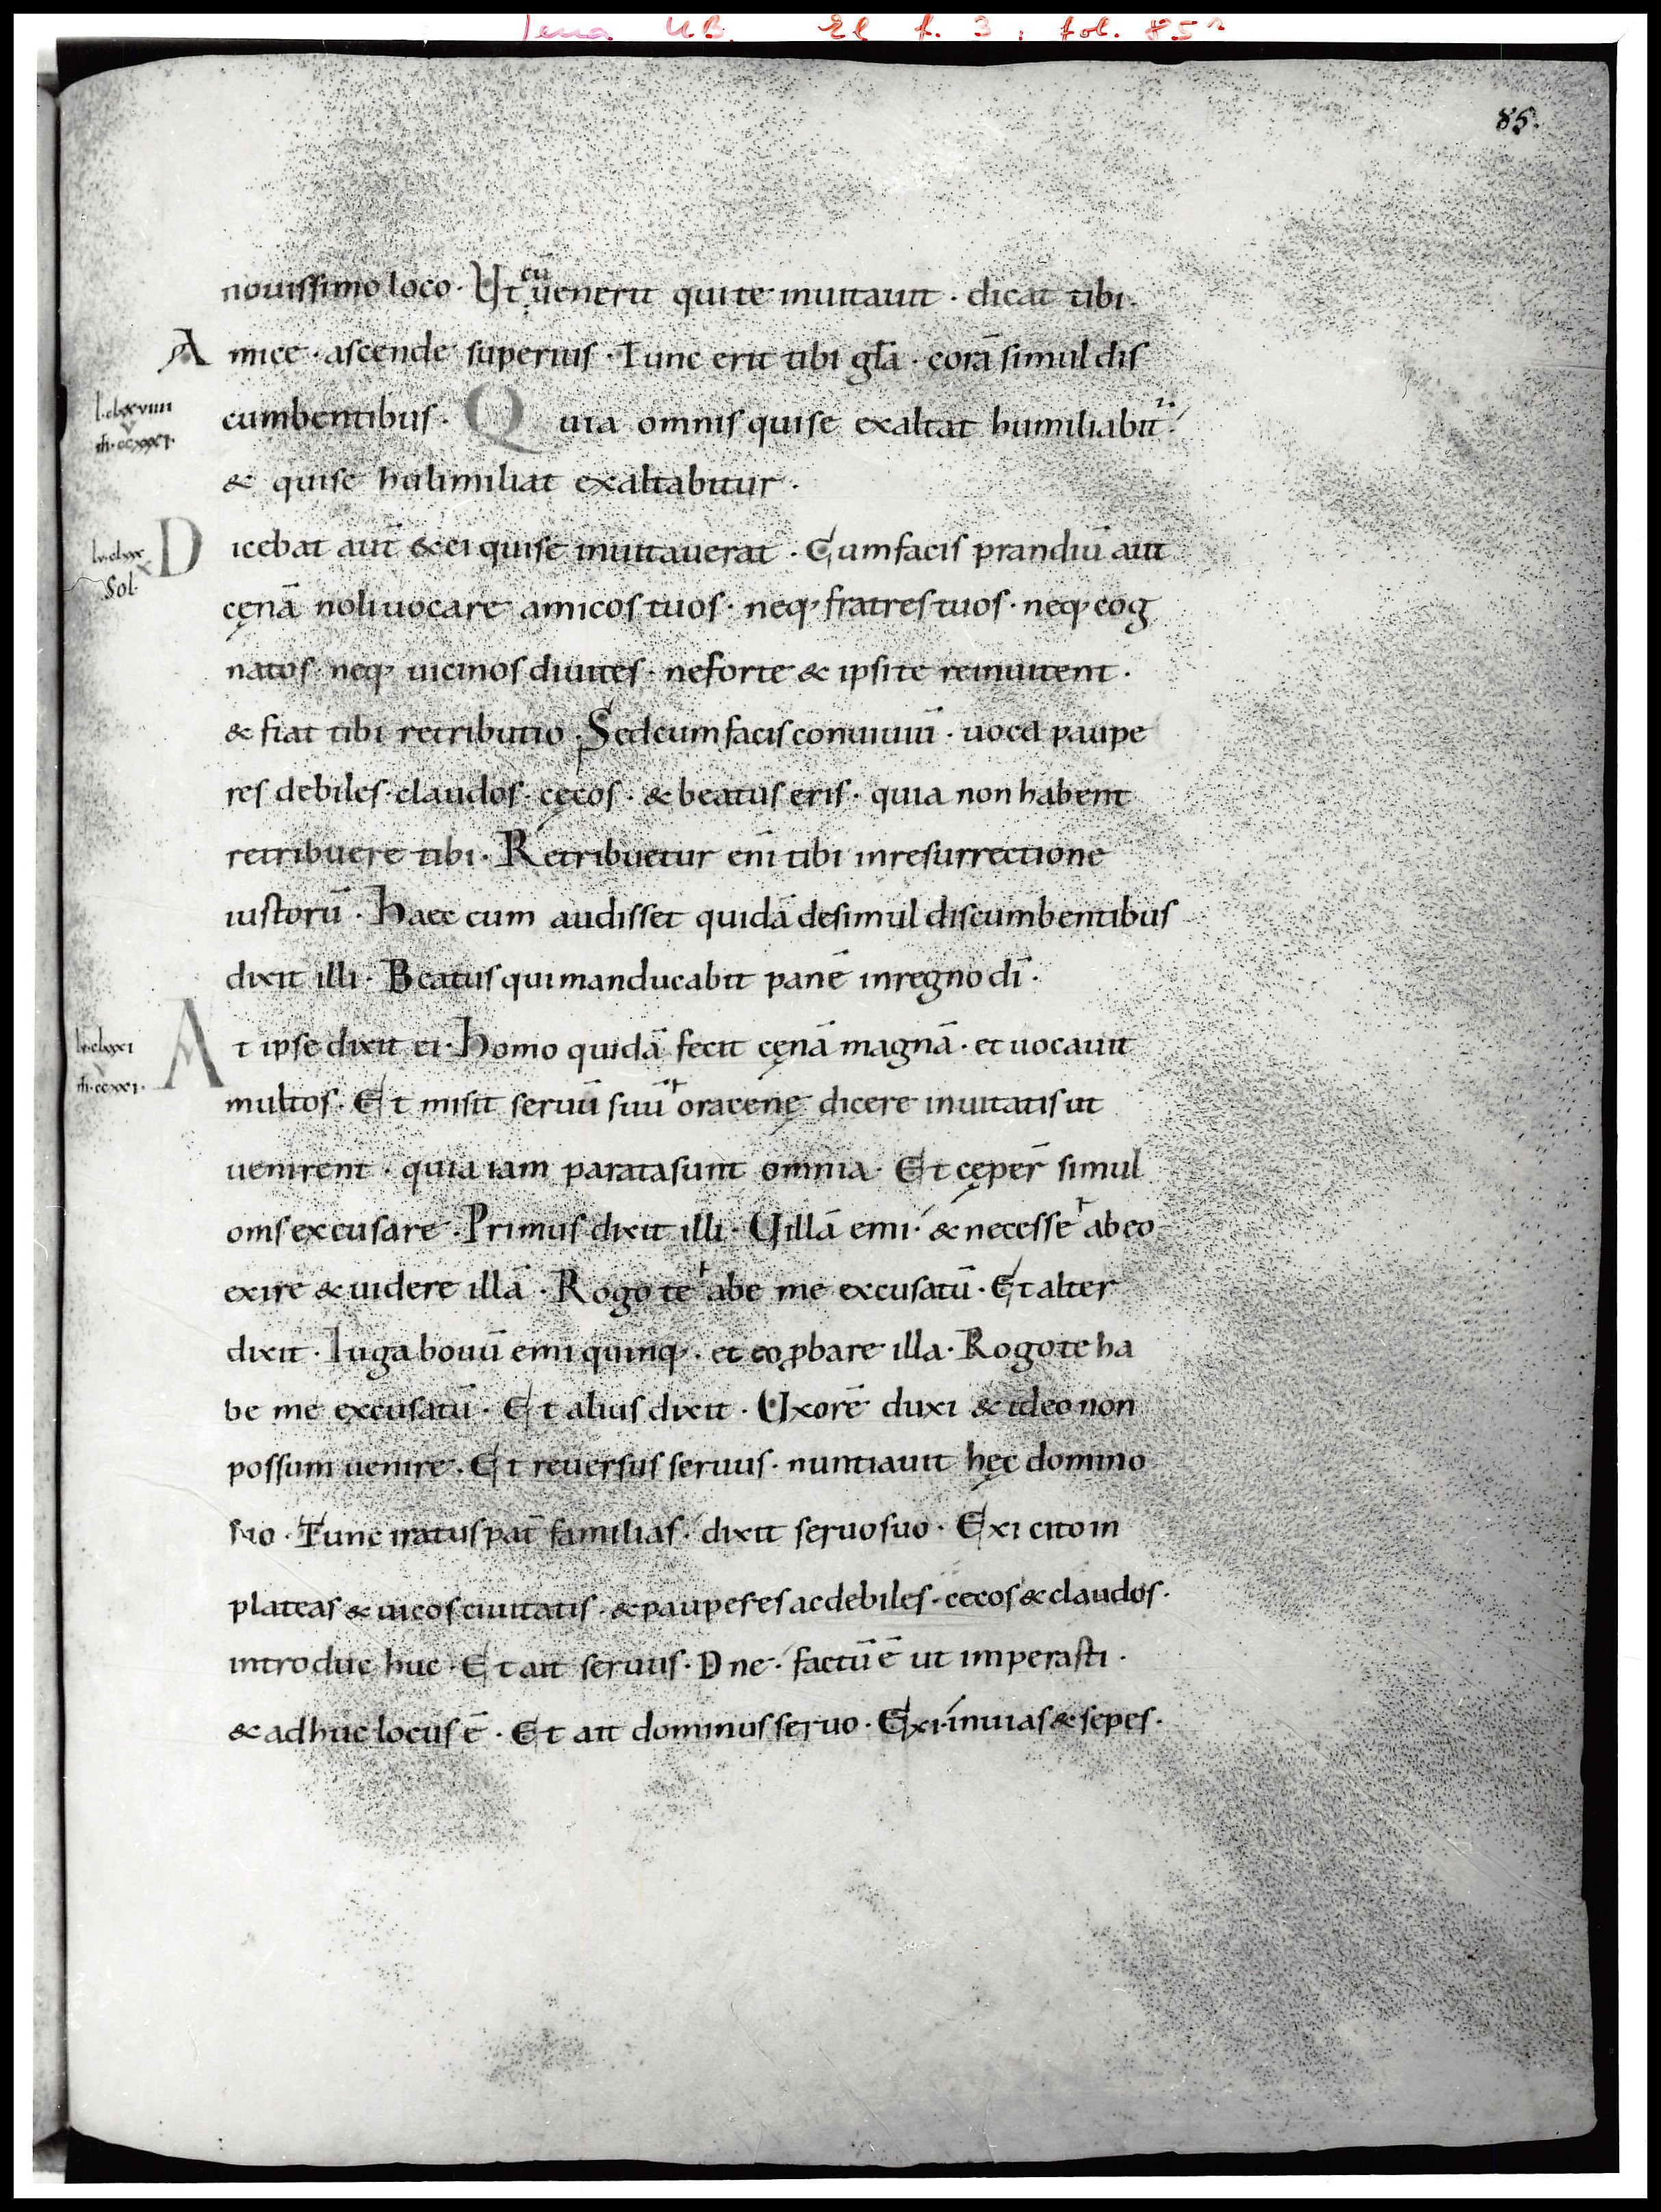 Jena UB. El f. 3, fol. 85r
85.
nouissimo loco · Ut cū uenerit qui te inuitauit · dicat tibi ·
Amice · ascende superius · Tunc erit tibi gl̄a · corā simul dis
l·clxxviiii
v
cumbentibus · Quia omnis qui se exaltat humiliabit͛ ·
& quise humiliat exaltabitur ·
lv·clxxx
x
Sol·
Dicebat aut̄ & ei quise inuitauerat · Cum facis prandiū aut
cęnā noli uocare amicos tuos · neq; fratres tuos · neq; cog
natos · neq; uicinos diuites · ne forte & ipsi te reinuitent ·
& fiat tibi retributio · Sed cum facis conuiuiū · uoca paupe
res debiles · claudos · cęcos · & beatus eris · quia non habent
retribuere tibi · Retribuetur enī tibi in resurrectione
iustorū · Haec cum audisset quidā de simul discumbentibus
dixit illi · Beatus qui manducabit panē in regno dī ·
lv·clxxxi
v
At ipse dixit ei · Homo quidā fecit cęnā magnā · et uocauit
m̄·ccxxi·
multos · Et misit seruū suū ⊦ora cenę dicere inuitatis ut
uenirent · quia iam parata sunt omnia · Et cęper̄ simul
om̄s excusare · Primus dixit illi · Uillā emi · & necesse ⊦abeo
exire & uidere illā · Rogo te ⊦abe me excusatū · Et alter
dixit · Iuga bouū emi quinq; · et eo ꝓbare illa · Rogo te ha
be me excusatū · Et alius dixit · Uxorē duxi & ideo non
possum uenire · Et reuersus seruus · nuntiauit hęc domino
suo · Tunc iratus pat̄ familias · dixit seruo suo · Exi cito in
plateas & uicos ciuitatis · & pauperes ac debiles · cecos & claudos ·
introduc huc · Et ait seruus · Dne · factū ē ut imperasti ·
& adhuc locus ē · Et ait dominus seruo · Exi in uias & sepes ·